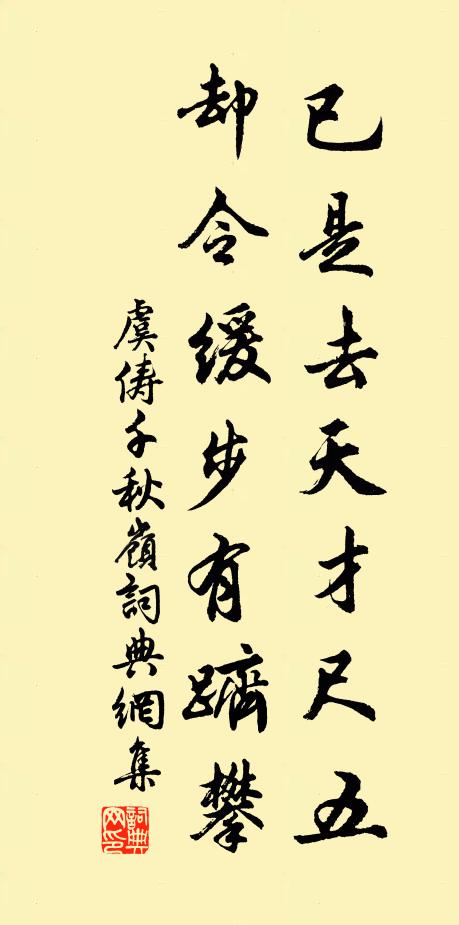 已是去天才尺五
却令缓步有躋攀
虞儔千秋嶺詞典網集
詞典
网印